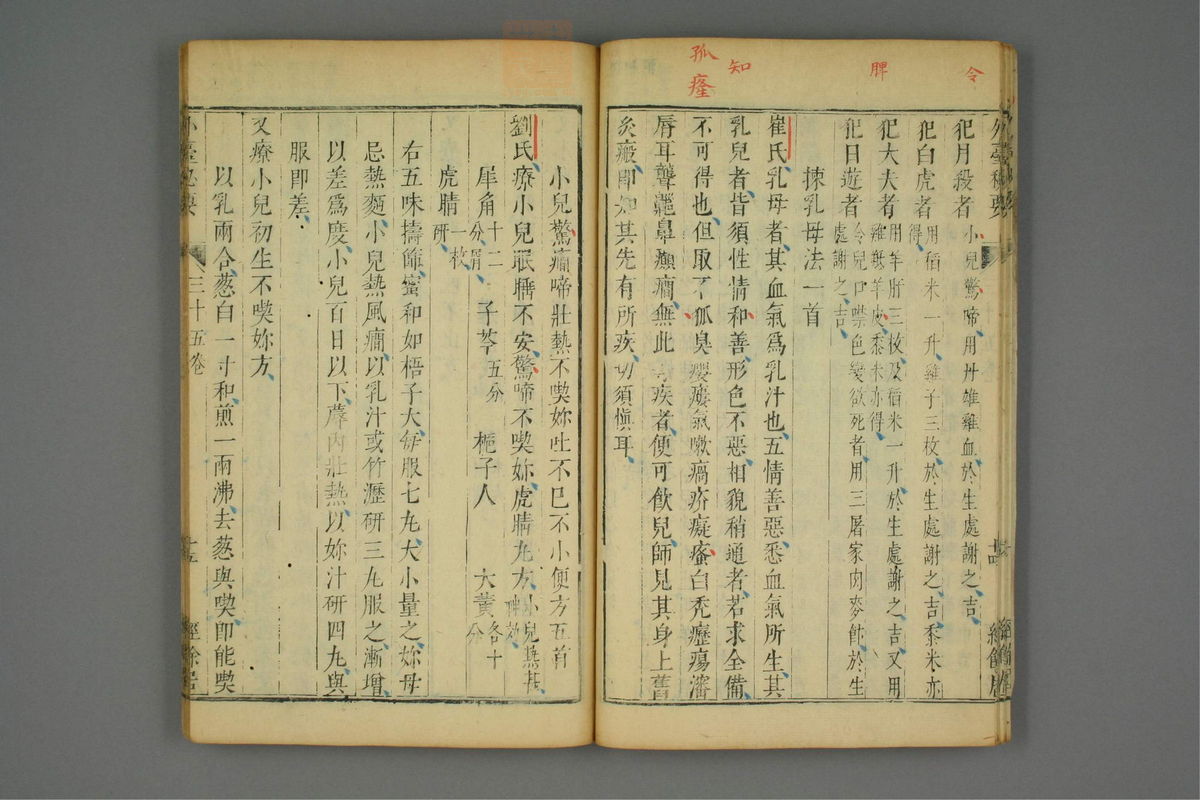 令
脾
知
孤
瘞
外臺秘要
犯月殺者小兒驚啼用丹雄雞血於生處謝之吉
犯白虎者用稻米一升雞子三枚於生處謝之吉黍米亦
得
犯大夫者用羊肝三枚及稻米一升於生處謝之吉又用
雞羝羊皮黍米亦得
犯日遊者令兒口噤色變欲死者用三屠家肉麥飰於生
處謝之吉
揀乳母法一首
崔氏乳母者其血氣爲乳汁也五情善惡悉血氣所生其
乳兒者皆須性情和善形色不惡相貌稍通者若求全備
不可得也但取不狐臭癭瘻氣嗽瘑疥癡瘙白禿癧瘍瀋
脣耳聾齆鼻癲癇無此等疾者便可飲兒師見其身上舊
灸瘢即知其先有所疾切須愼耳
小兒驚癇啼壯熱不喫妳吐不已不小便方五首
劉氏療小兒眠睡不安驚啼不喫妳虎睛丸方小兒無甚
神効
犀角十二分屑 子芩五分 梔子人 大黃各十分
虎睛一枚研
右五味擣篩蜜和如梧子大每服七丸大小量之妳母
忌熱麵小兒熱風癇以乳汁或竹瀝研三丸服之漸增
以差爲度小兒百日以下蓐內壯熱以妳汁研四丸與
服即差
又療小兒初生不喫妳方
以乳兩合葱白一寸和煎一兩沸去葱與喫即能喫
外臺秘要 三十五卷